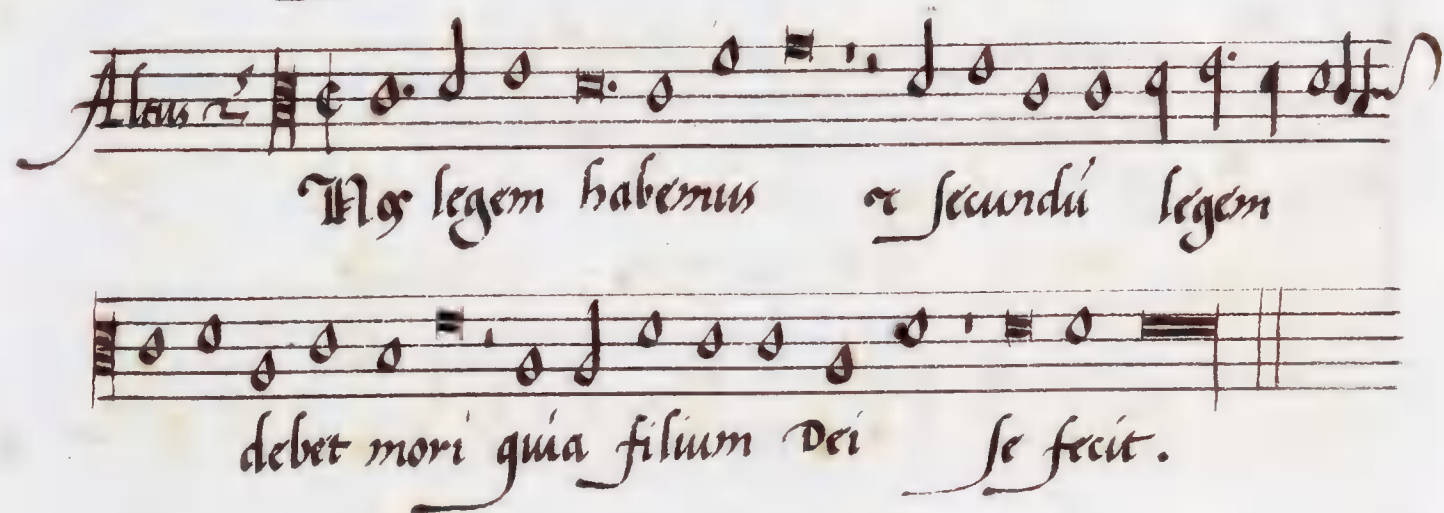 Altus 2ˢ
Nos legem habemus & secundū legem
debet mori quia filium Dei se fecit.